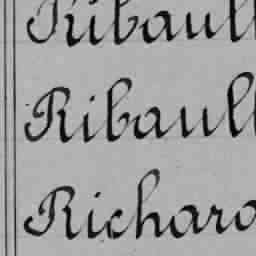 Ribaul
Ribaul
Richar